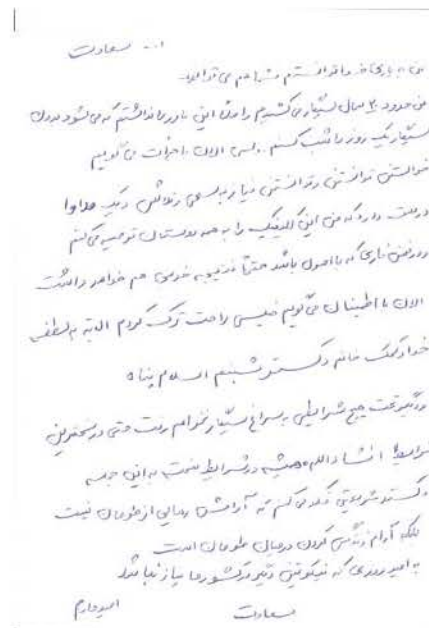 ا.. سعادت
من به یاری خدا توانستم شما هم می توانید
من حدود ۲۰ سال سیگار می کشیدم و اصلا این باور را نداشتم که می شود بدون
سیگار یک روز را شب کنم. پس الان با جرأت می گویم
خواستن توانستن و توانستن نیاز به سعی و تلاش دیگر
درست دارد که من این کلینیک را به همه دوستان توصیه می کنم
و در هر کاری که با اصول باشد حتما نتیجه خوبی هم خواهد داشت
الان با اطمینان می گویم خیلی راحت ترک کردم البته به لطف
خدا و کمک خانم دکتر شبنم اسلام پناه
و دیگر تحت هیچ شرایطی به سراغ سیگار نخواهم رفت حتی در سخترین
شرایط! انشاءالله همیشه در شرایط سخت به این جمله
دکتر شریعتی فکر می کنم که آرامش رهایی از طوفان نیست
بلکه آرام زندگی کردن در میان طوفان است
به امید روزی که نیکوتین دیگر در کشور ما نیاز نباشد
امیدوارم
سعادت